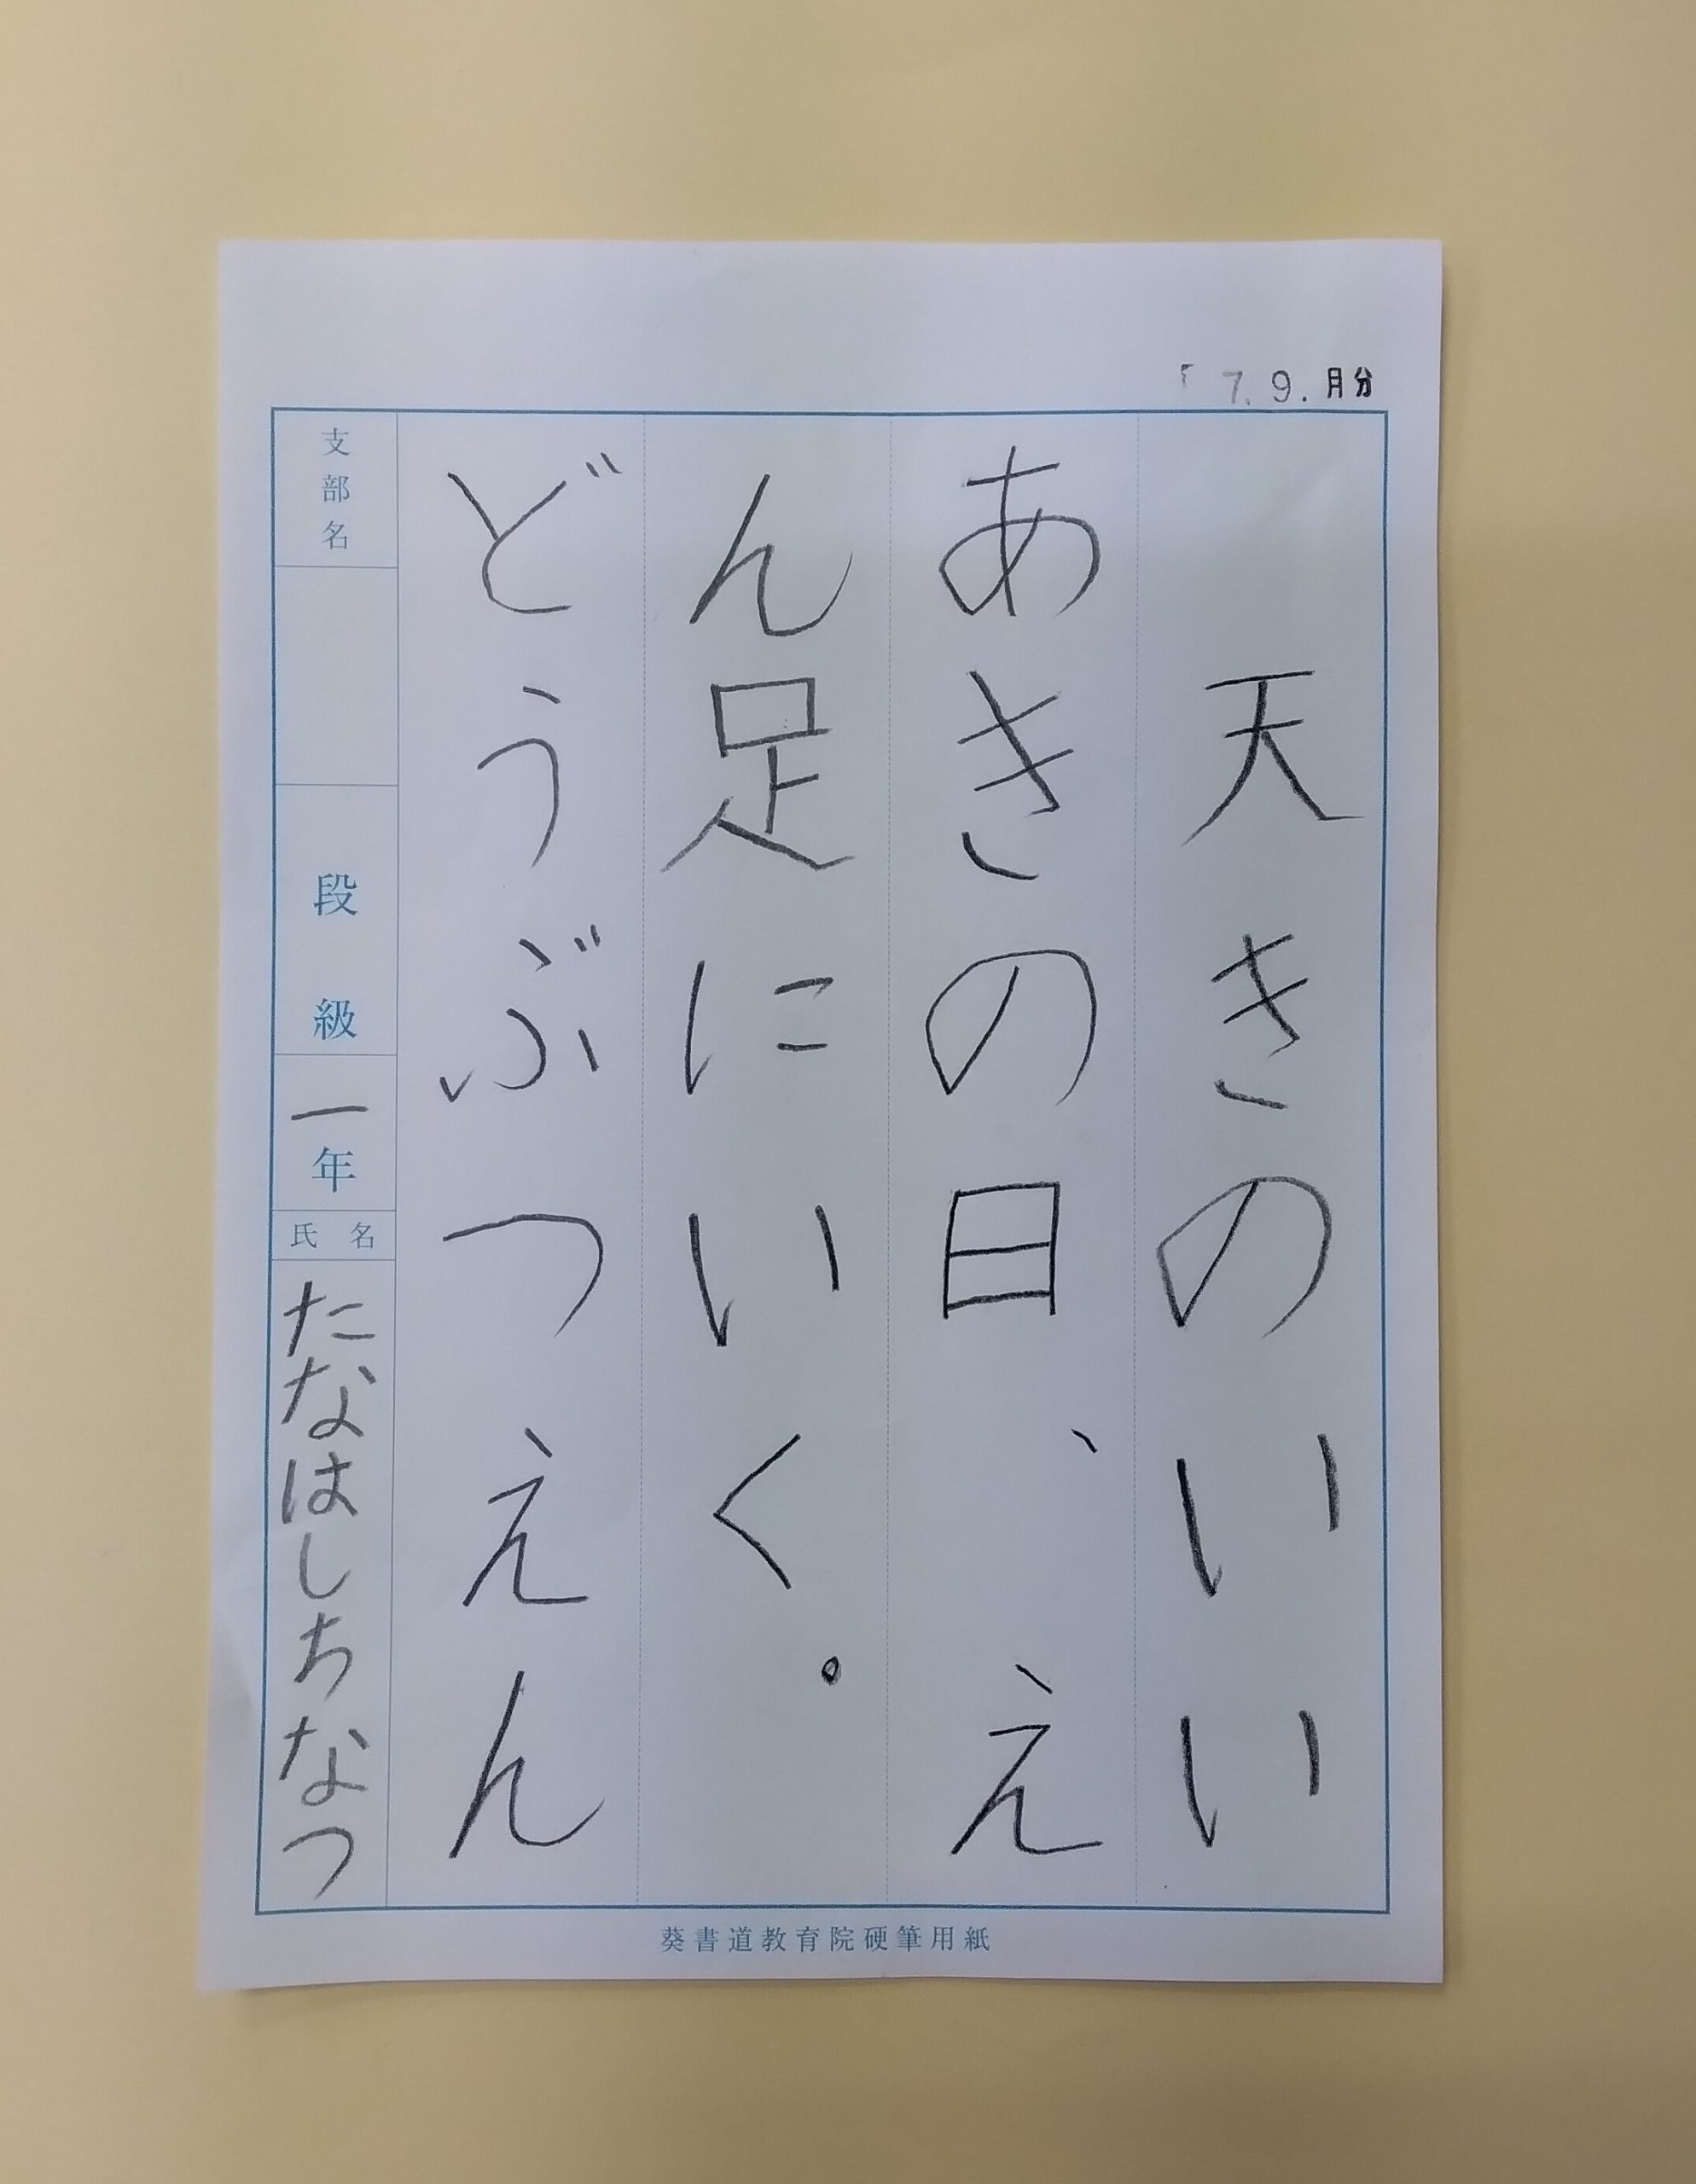 7.9.月分
天きのいい
あきの日、え
ん足にいく。
どうぶつえん
支部名
段級
一年
氏名
たなはしちなつ
葵書道教育院硬筆用紙